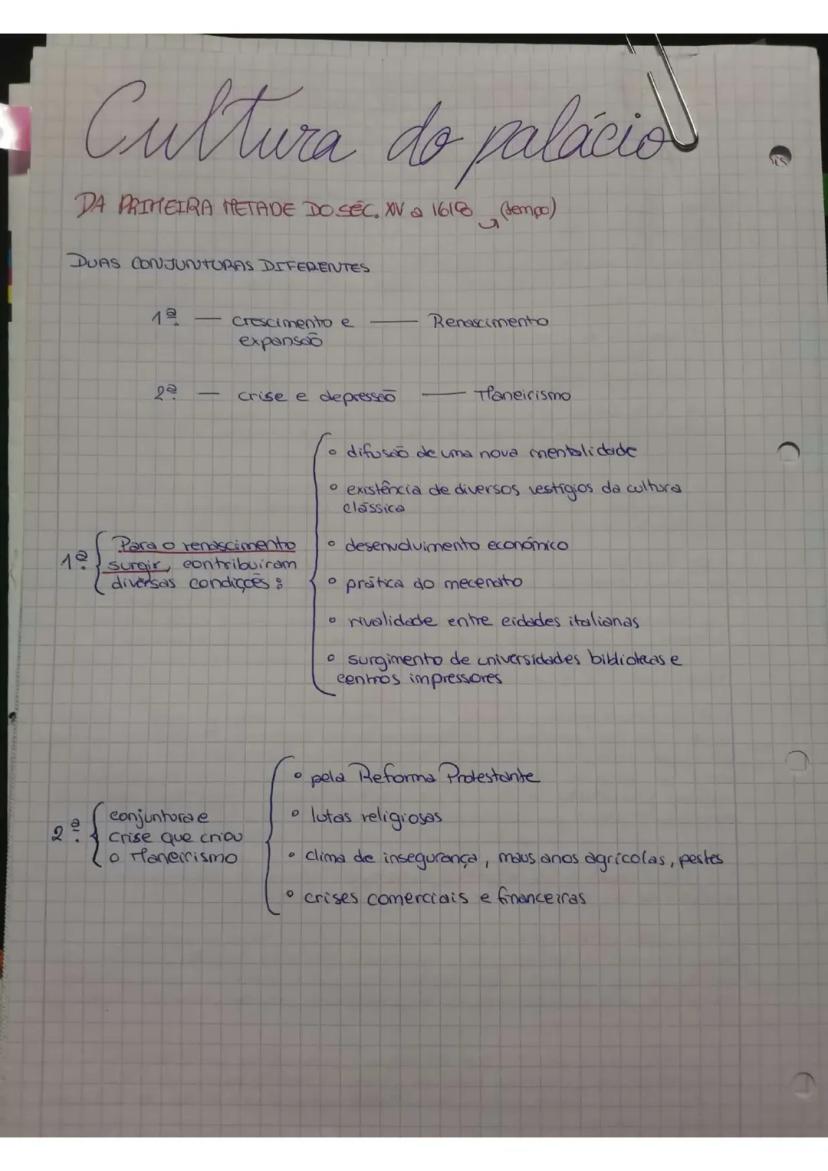 Cultura do palácio
DA PRIMEIRA METADE DO SÉC. XV a 1618 (tempo)
DUAS CONJUNTURAS DIFERENTES
1ª — crescimento e — Renascimento
expansão
2ª — crise e depressão — Maneirismo
• difusão de uma nova mentalidade
• existência de diversos vestígios da cultura
clássica
1ª Para o renascimento
surgir, contribuiram
diversas condições:
• desenvolvimento económico
• prática do mecenato
• rivalidade entre cidades italianas
• surgimento de universidades bibliotecas e
centros impressores
2ª conjuntura e
crise que criou
o Maneirismo
• pela Reforma Protestante
• lutas religiosas
• clima de insegurança, maus anos agrícolas, pestes
• crises comerciais e financeiras